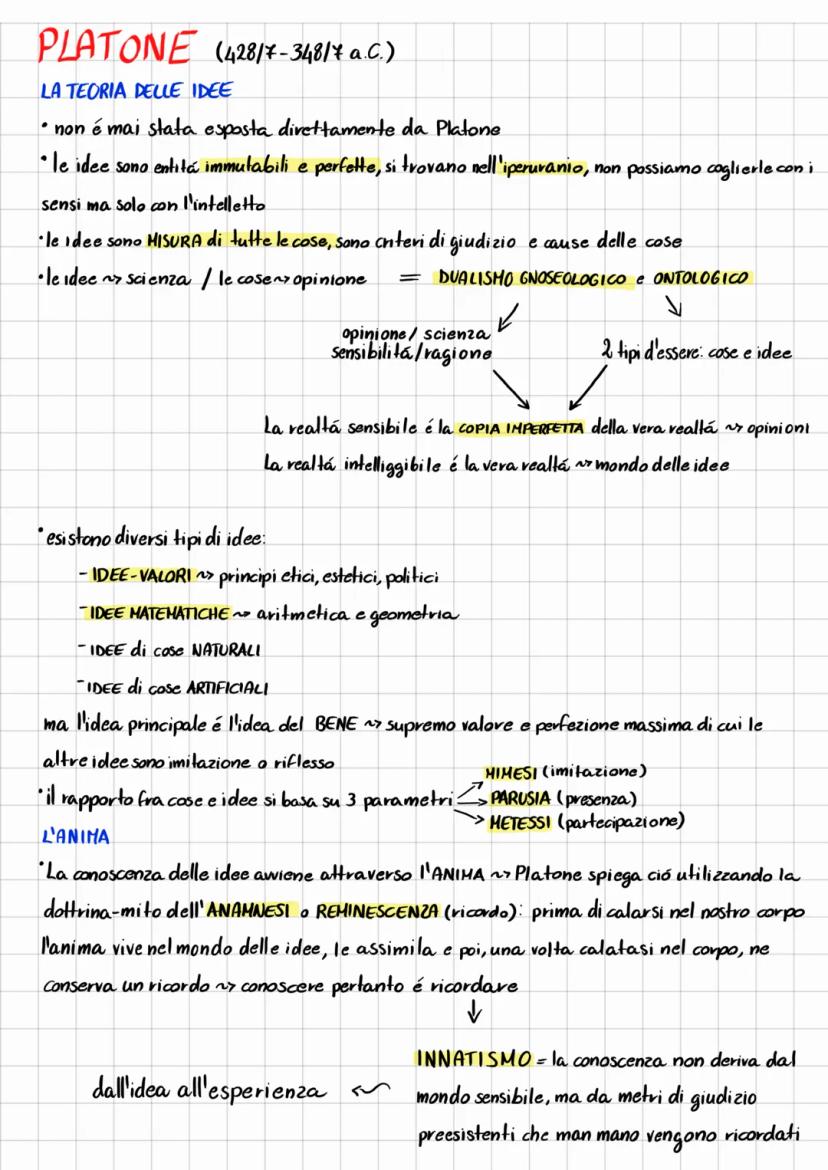 PLATONE (428/7-348/7 a.C.)
LA TEORIA DELLE IDEE
• non é mai stata esposta direttamente da Platone
• le idee sono entitá immutabili e perfette, si trovano nell'iperuranio, non possiamo coglierle con i
sensi ma solo con l'intelletto
• le idee sono MISURA di tutte le cose, sono criteri di giudizio e cause delle cose
• le idee ~> scienza / le cose ~> opinione = DUALISMO GNOSEOLOGICO e ONTOLOGICO
opinione / scienza
sensibilitá/ragione
2 tipi d'essere: cose e idee
La realtá sensibile é la COPIA IMPERFETTA della vera realtá ~> opinioni
La realtá intelliggibile é la vera realtá ~> mondo delle idee
• esistono diversi tipi di idee:
- IDEE-VALORI ~> principi etici, estetici, politici
- IDEE MATEMATICHE ~> aritmetica e geometria
- IDEE di cose NATURALI
- IDEE di cose ARTIFICIALI
ma l'idea principale é l'idea del BENE ~> supremo valore e perfezione massima di cui le
altre idee sono imitazione o riflesso
• il rapporto fra cose e idee si basa su 3 parametri
MIMESI (imitazione)
PARUSIA (presenza)
METESSI (partecipazione)
L'ANIMA
• La conoscenza delle idee avviene attraverso l'ANIMA ~> Platone spiega ció utilizzando la
dottrina-mito dell'ANAMNESI o REMINESCENZA (ricordo): prima di calarsi nel nostro corpo
l'anima vive nel mondo delle idee, le assimila e poi, una volta calatasi nel corpo, ne
conserva un ricordo ~> conoscere pertanto é ricordare
↓
INNATISMO = la conoscenza non deriva dal
mondo sensibile, ma da metri di giudizio
preesistenti che man mano vengono ricordati
dall'idea all'esperienza <~